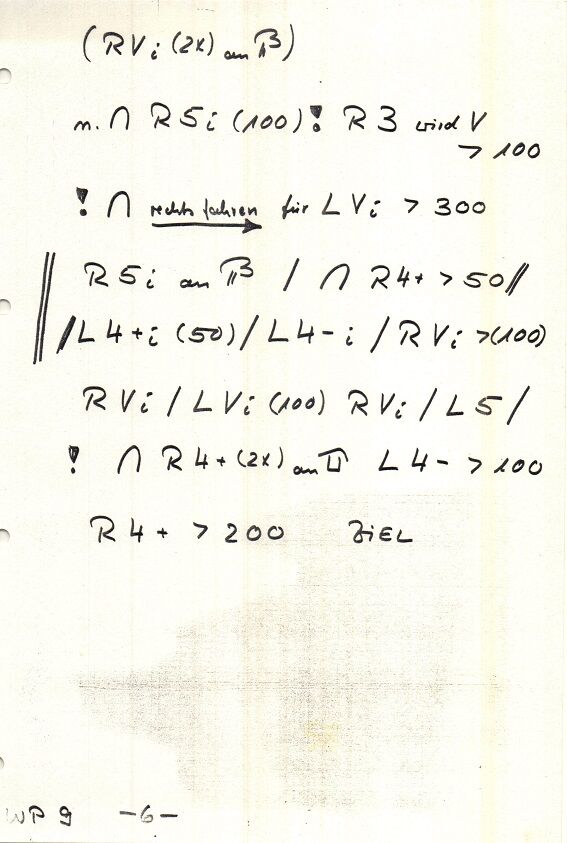 (RVi (2x) am B)
n. ∩ R5i (100) ! R3 wird V
> 100
! ∩ rechts fahren für LVi > 300
R5i am B / ∩ R4+ > 50 //
/ L4+i (50) / L4-i / RVi > (100)
RVi / LVi (100) RVi / L5 /
! ∩ R4+ (2x) am L4- > 100
R4+ > 200 ZIEL
WP 9 -6-